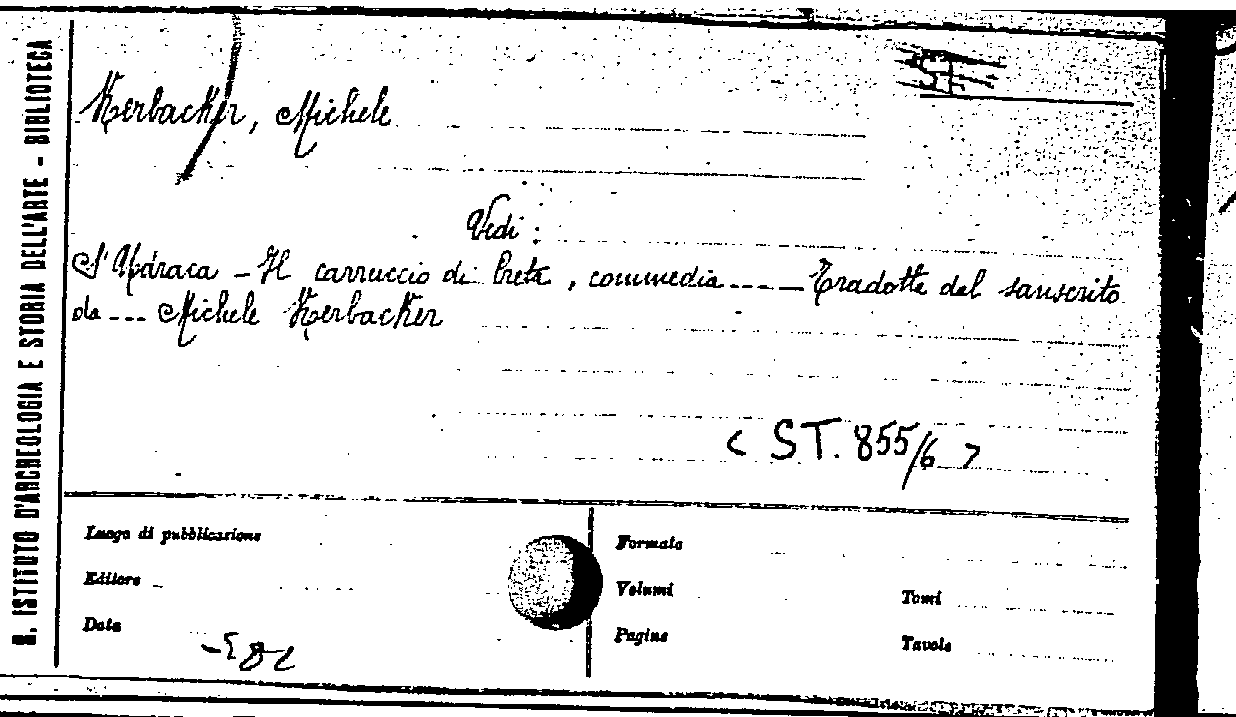 R. ISTITUTO D'ARCHEOLOGIA E STORIA DELL'ARTE - BIBLIOTECA
Kerbacker, Michele
Vedi:
Il carruccio di creta, commedia ---- Tradotta dal sanscrito
da --- Michele Kerbacker
< ST. 855/6 >
Luogo di pubblicazione
Editore
Data
Formato
Volumi
Tomi
Pagine
Tavole